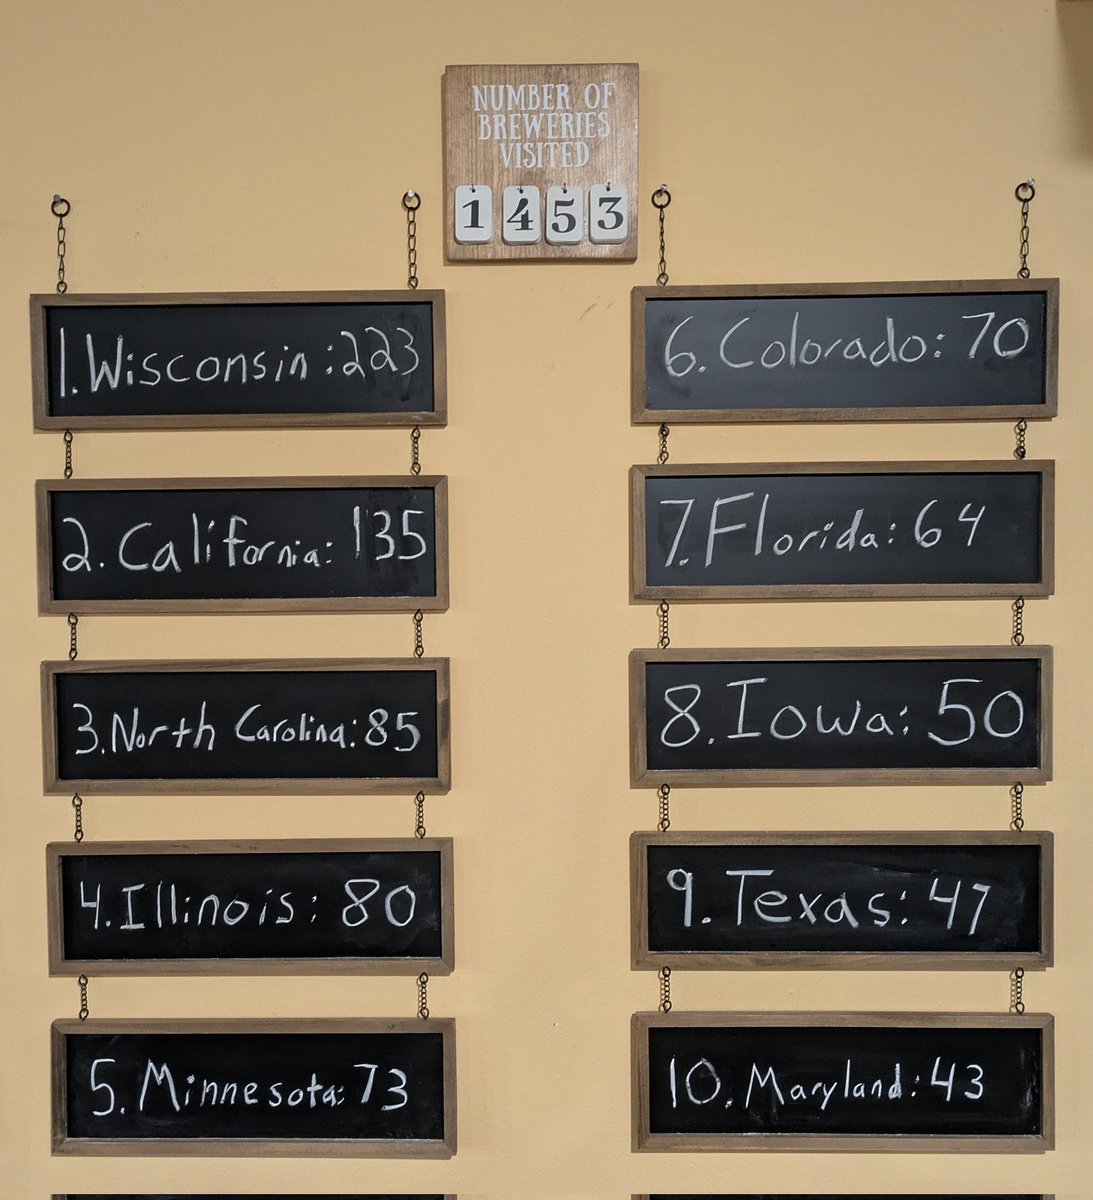 NUMBER OF
BREWERIES
VISITED
1453
1. Wisconsin: 223
2. California: 135
3. North Carolina: 85
4. Illinois: 80
5. Minnesota: 73
6. Colorado: 70
7. Florida: 64
8. Iowa: 50
9. Texas: 47
10. Maryland: 43